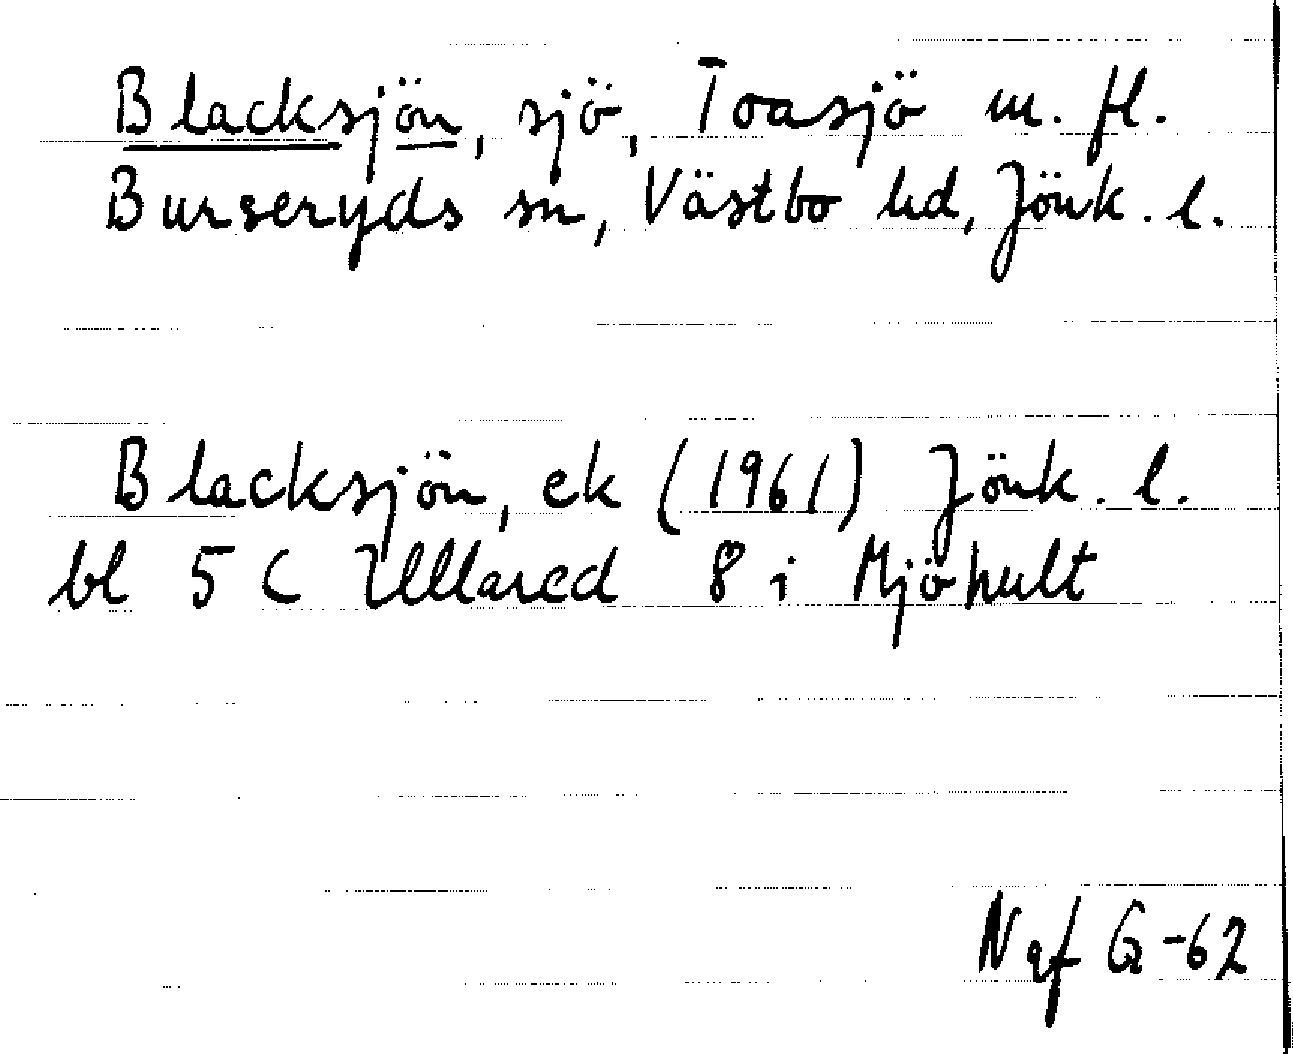 Blacksjön, sjö, Toasjö m. fl.
Burseryds sn, Västbo hd, Jönk. l.
Blacksjön, ek (1961) Jönk. l.
bl 5 C Ullared 8 i Mjöhult
Nqf G-62